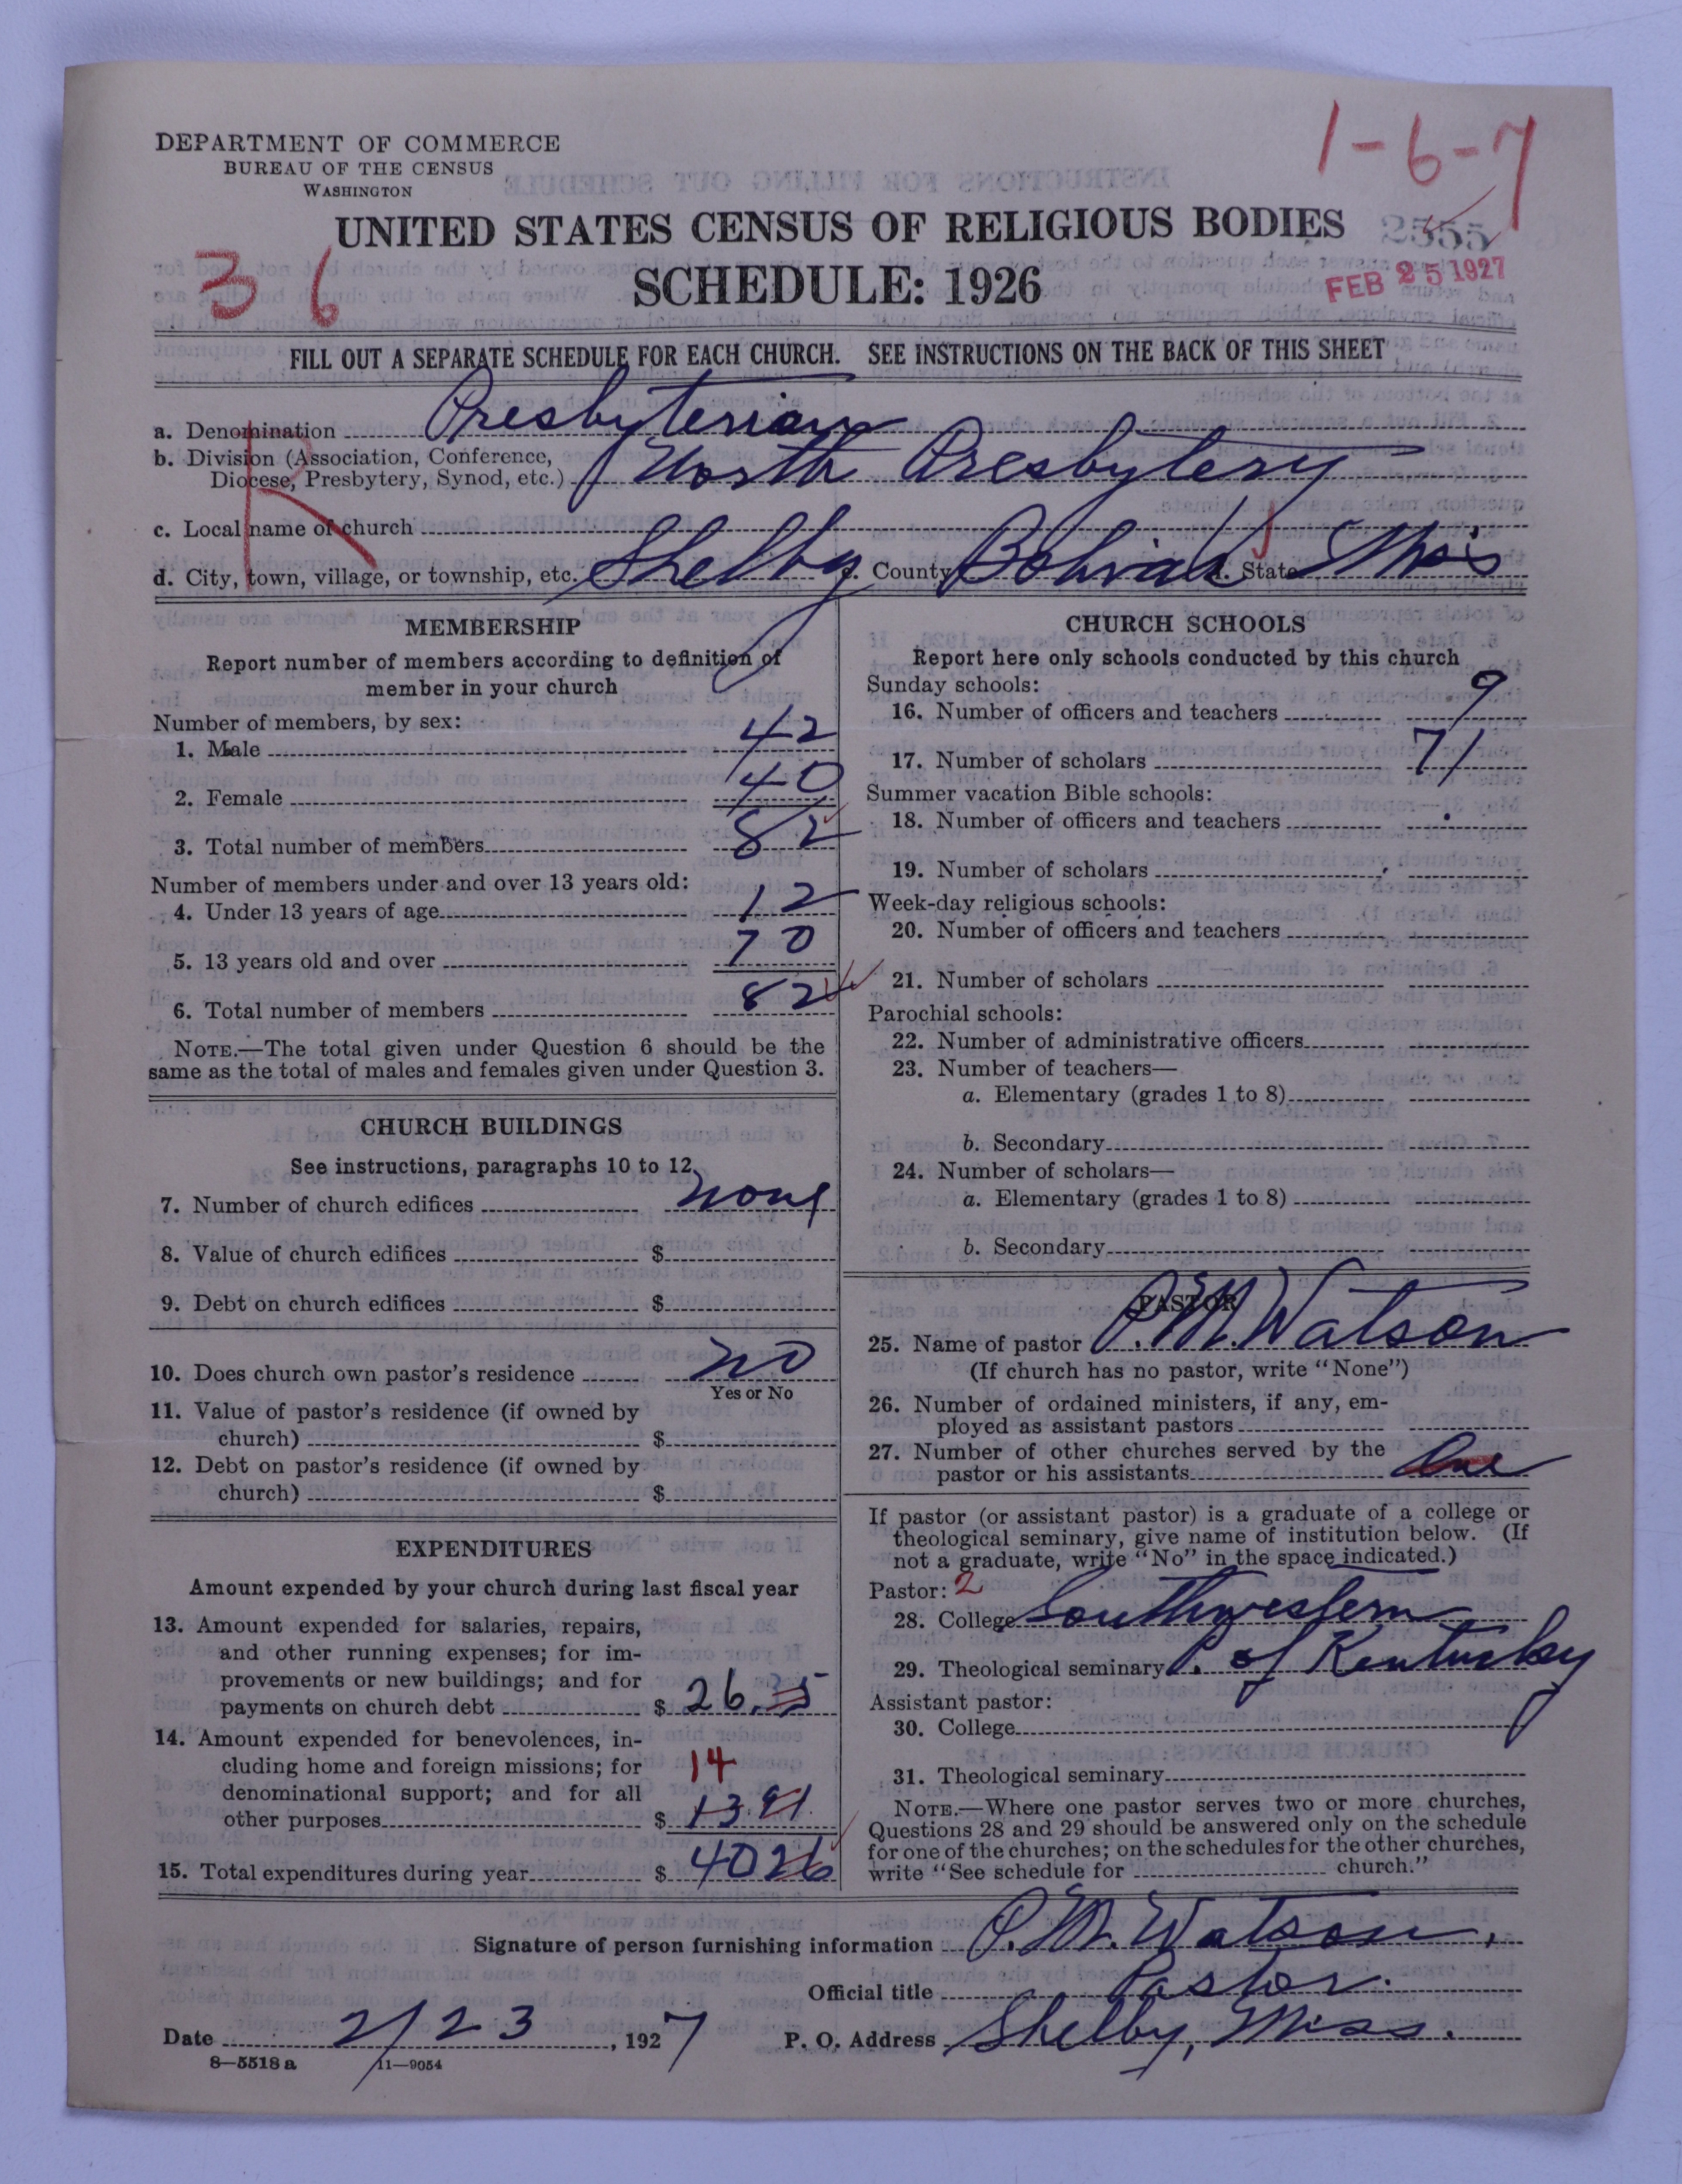 DEPARTMENT OF COMMERCE
BUREAU OF THE CENSUS
WASHINGTON
1-6-7
UNITED STATES CENSUS OF RELIGIOUS BODIES
2555
36
SCHEDULE: 1926
FEB 25 1927
FILL OUT A SEPARATE SCHEDULE FOR EACH CHURCH. SEE INSTRUCTIONS ON THE BACK OF THIS SHEET
R
a. Denomination Presbyterian
b. Division (Association, Conference,
Diocese, Presbytery, Synod, etc.) North Presbytery
c. Local name of church
d. City, town, village, or township, etc. Shelby e. County Bolivar f. State Miss
MEMBERSHIP
Report number of members according to definition of
member in your church
Number of members, by sex:
1. Male 42
2. Female 40
3. Total number of members 82
Number of members under and over 13 years old:
4. Under 13 years of age 12
5. 13 years old and over 70
6. Total number of members 82
NOTE.—The total given under Question 6 should be the
same as the total of males and females given under Question 3.
CHURCH BUILDINGS
See instructions, paragraphs 10 to 12
7. Number of church edifices none
8. Value of church edifices $
9. Debt on church edifices $
10. Does church own pastor's residence no
Yes or No
11. Value of pastor's residence (if owned by
church) $
12. Debt on pastor's residence (if owned by
church) $
EXPENDITURES
Amount expended by your church during last fiscal year
13. Amount expended for salaries, repairs,
and other running expenses; for im-
provements or new buildings; and for
payments on church debt $ 26.35
14. Amount expended for benevolences, in-
cluding home and foreign missions; for 14
denominational support; and for all
other purposes $ 13.91
15. Total expenditures during year $ 4026
CHURCH SCHOOLS
Report here only schools conducted by this church
Sunday schools:
16. Number of officers and teachers 9
17. Number of scholars 71
Summer vacation Bible schools:
18. Number of officers and teachers
19. Number of scholars
Week-day religious schools:
20. Number of officers and teachers
21. Number of scholars
Parochial schools:
22. Number of administrative officers
23. Number of teachers—
a. Elementary (grades 1 to 8)
b. Secondary
24. Number of scholars—
a. Elementary (grades 1 to 8)
b. Secondary
PASTOR
25. Name of pastor P.M. Watson
(If church has no pastor, write "None")
26. Number of ordained ministers, if any, em-
ployed as assistant pastors
27. Number of other churches served by the
pastor or his assistants One
If pastor (or assistant pastor) is a graduate of a college or
theological seminary, give name of institution below. (If
not a graduate, write "No" in the space indicated.)
Pastor: 2
28. College Southwestern
29. Theological seminary of Kentucky
Assistant pastor:
30. College
31. Theological seminary
NOTE.—Where one pastor serves two or more churches,
Questions 28 and 29 should be answered only on the schedule
for one of the churches; on the schedules for the other churches,
write "See schedule for church."
Signature of person furnishing information P.M. Watson.
Official title Pastor.
Date 2/23, 1927 P. O. Address Shelby, Miss.
8—5518 a 11—9054